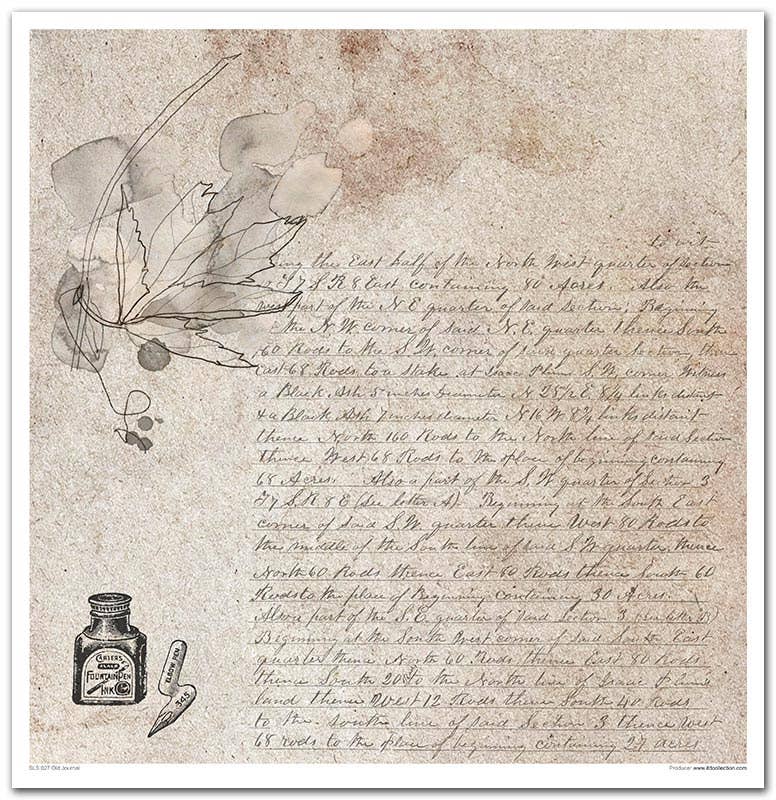 to wit
ing the East half of the North West quarter of Section
T 7 S. R 8 East containing 80 Acres. Also the
West part of the N E quarter of said Section; Beginning
the N. W. corner of said N. E. quarter thence South
60 Rods to the S. W. corner of said quarter Section, thence
East 68 Rods to a Stake at Isaac S. W. corner Witness
a Black Ash 5 inches Diameter N 25½ E. 8¼ links distant
& a Black Ash 7 inches diameter N 16 W 8¾ links distant
thence North 160 Rods to the North line of said Section
thence West 68 Rods to the place of beginning containing
68 Acres. Also a part of the S. W quarter of Section 3
T 7 S. R. 8 E (See letter A) Beginning at the South East
corner of said S. W. quarter thence West 80 Rods to
the middle of the South line of said S W quarter, thence
North 60 Rods thence East 60 Rods thence South 60
Rods to the place of Beginning containing 30 Acres.
Also a part of the S. E. quarter of said Section 3 (see letter B)
Beginning at the South West corner of said South East
quarter thence North 60 Rods thence East 80 Rods
thence South 20 to the North line of Isaac
land thence West 12 Rods thence South 40 Rods
to the south line of said Section 3 thence West
68 rods to the place of beginning containing 27 acres
CARTER'S
BLACK
FOUNTAIN PEN
INK
ELBOW PEN
345
SLS 027 Old Journal
Producer www.itdcollection.com